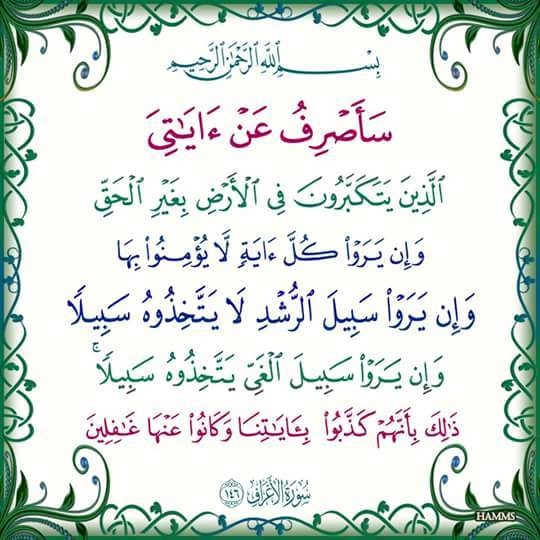 بِسْمِ اللَّهِ الرَّحْمَٰنِ الرَّحِيمِ
سَأَصْرِفُ عَنْ ءَايَٰتِىَ
الَّذِينَ يَتَكَبَّرُونَ فِى الْأَرْضِ بِغَيْرِ الْحَقِّ
وَإِن يَرَوْا۟ كُلَّ ءَايَةٍ لَّا يُؤْمِنُوا۟ بِهَا
وَإِن يَرَوْا۟ سَبِيلَ الرُّشْدِ لَا يَتَّخِذُوهُ سَبِيلًا
وَإِن يَرَوْا۟ سَبِيلَ الْغَىِّ يَتَّخِذُوهُ سَبِيلًا ۚ
ذَٰلِكَ بِأَنَّهُمْ كَذَّبُوا۟ بِـَٔايَٰتِنَا وَكَانُوا۟ عَنْهَا غَٰفِلِينَ
سُورَةُ الأَعْرَافِ ١٤٦
HAMMS